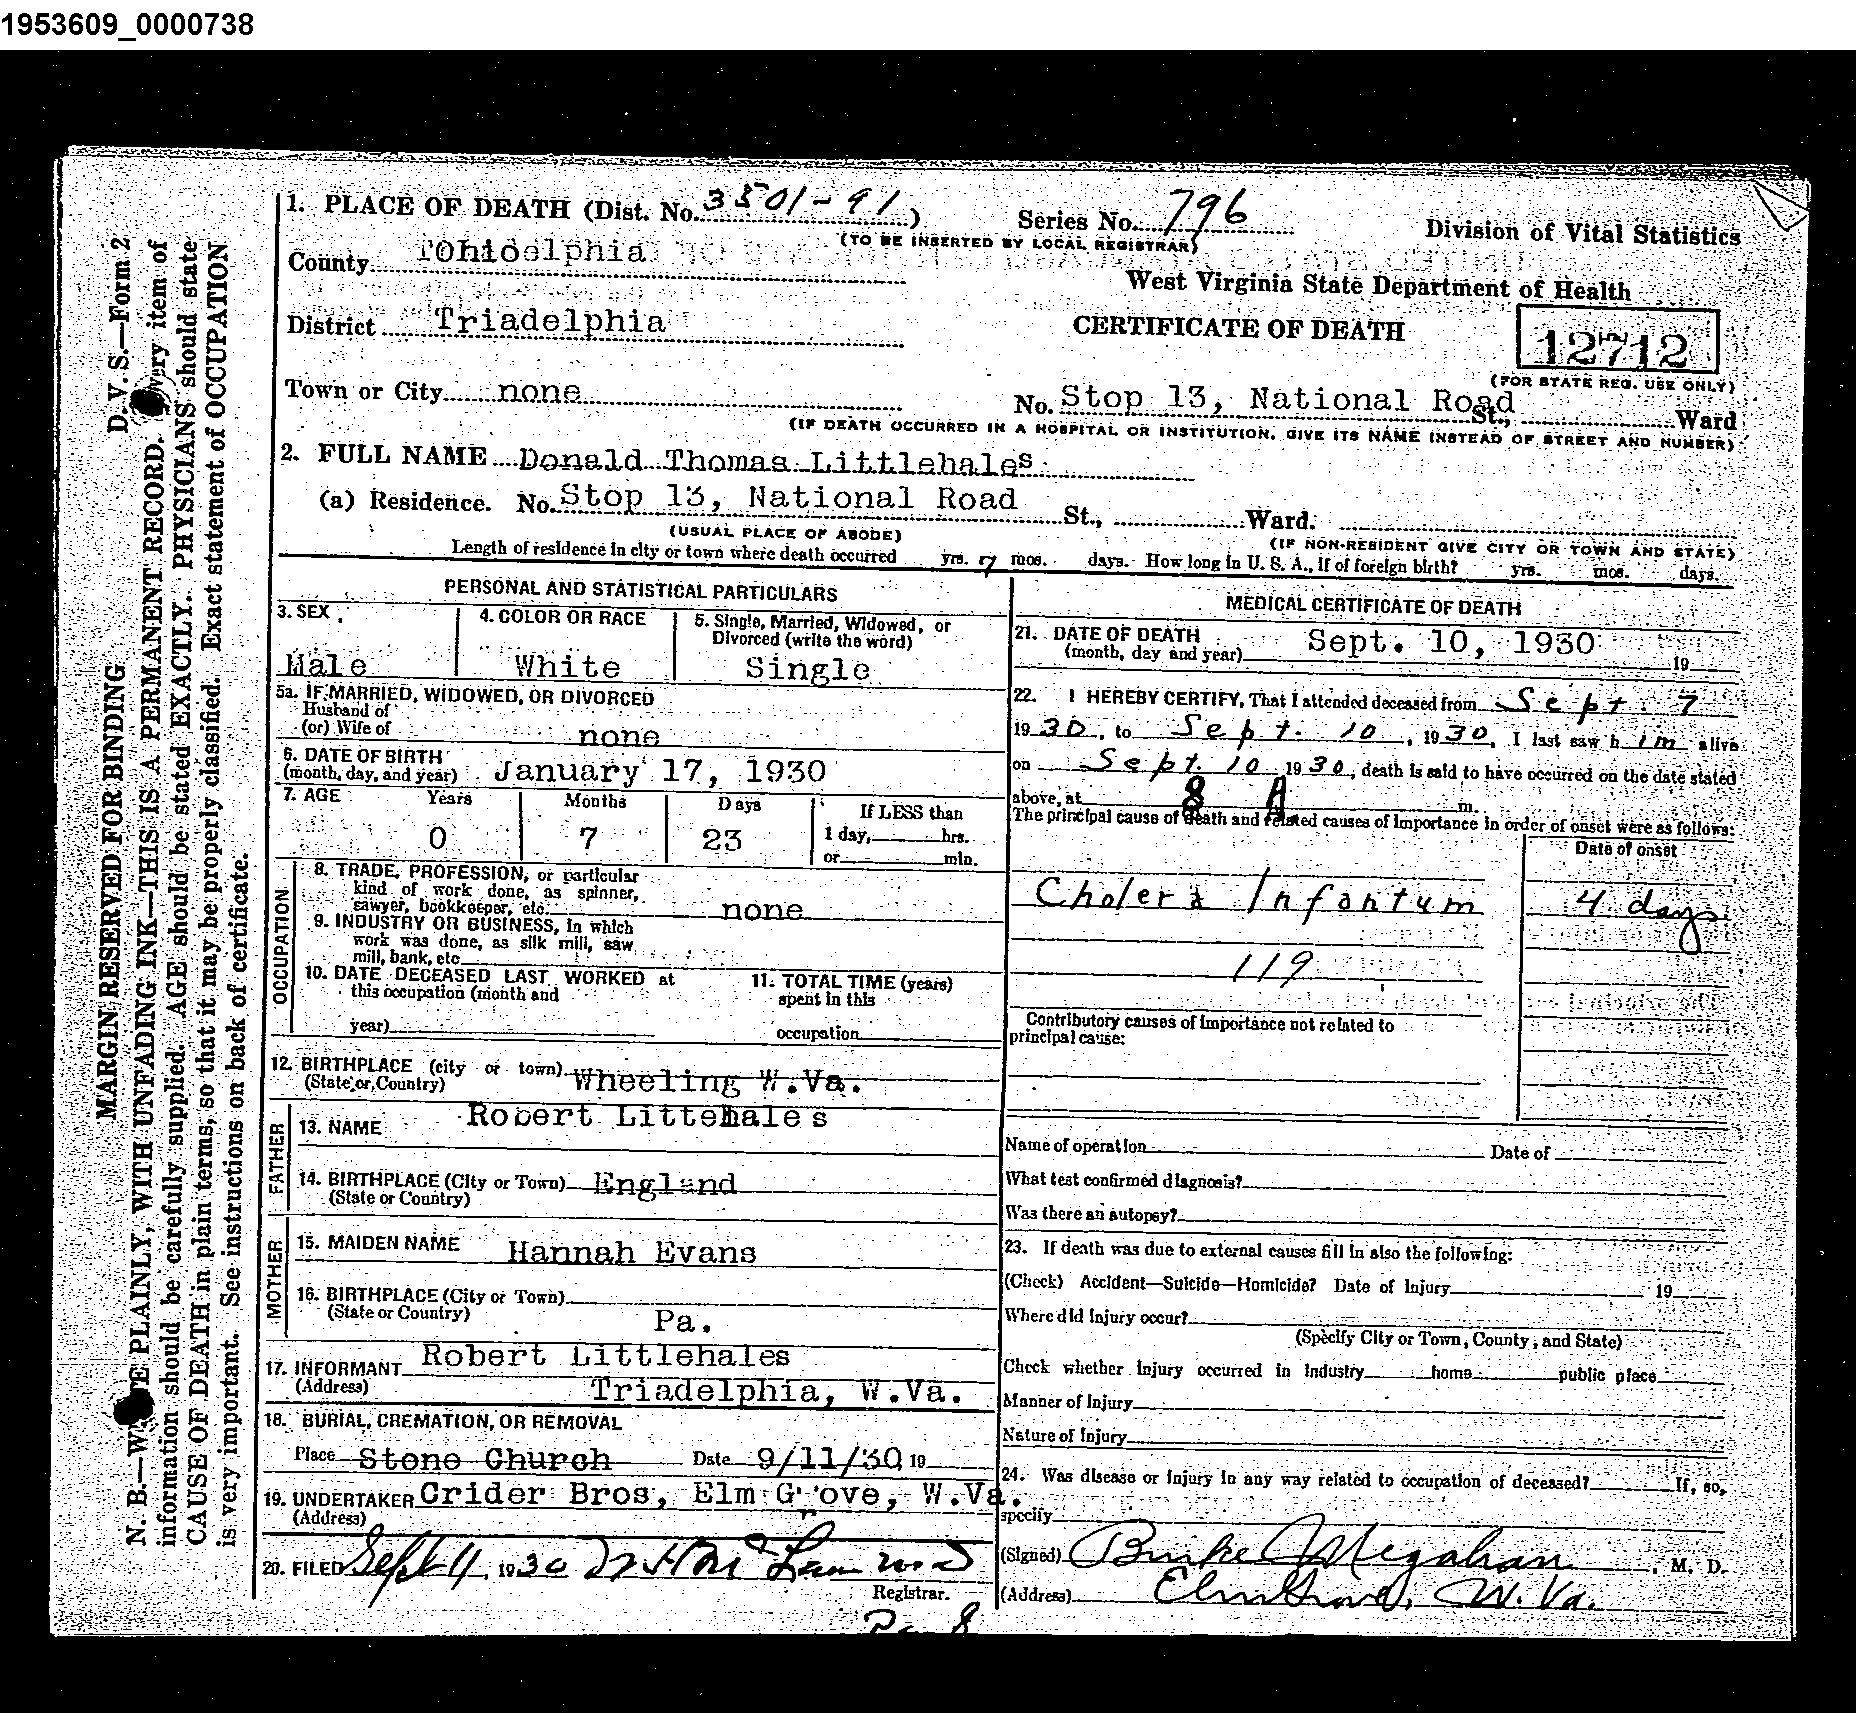 1953609_0000738
1. PLACE OF DEATH (Dist. No. 3501-91)
Series No. 796
Division of Vital Statistics
(TO BE INSERTED BY LOCAL REGISTRAR)
County
West Virginia State Department of Health
District Triadelphia
CERTIFICATE OF DEATH
12712
(FOR STATE REG. USE ONLY)
Town or City none
No. Stop 13, National Road St., Ward
(IF DEATH OCCURRED IN A HOSPITAL OR INSTITUTION, GIVE ITS NAME INSTEAD OF STREET AND NUMBER)
2. FULL NAME Donald Thomas Littlehales
(a) Residence. No. Stop 13, National Road St., Ward.
(USUAL PLACE OF ABODE)
(IF NON-RESIDENT GIVE CITY OR TOWN AND STATE)
Length of residence in city or town where death occurred yrs. 7 mos. days. How long in U. S. A., if of foreign birth? yrs. mos. days.
PERSONAL AND STATISTICAL PARTICULARS
3. SEX
Male
4. COLOR OR RACE
White
5. Single, Married, Widowed, or
Divorced (write the word)
Single
5a. IF MARRIED, WIDOWED, OR DIVORCED
Husband of
(or) Wife of none
6. DATE OF BIRTH
(month, day, and year) January 17, 1930
7. AGE Years Months Days If LESS than
0 7 23 1 day, hrs.
or min.
OCCUPATION
8. TRADE, PROFESSION, or particular
kind of work done, as spinner,
sawyer, bookkeeper, etc. none
9. INDUSTRY OR BUSINESS, in which
work was done, as silk mill, saw
mill, bank, etc
10. DATE DECEASED LAST WORKED at
this occupation (month and
year)
11. TOTAL TIME (years)
spent in this
occupation
12. BIRTHPLACE (city or town) Wheeling W.Va.
(State or Country)
FATHER
13. NAME Robert Littehales
14. BIRTHPLACE (City or Town) England
(State or Country)
MOTHER
15. MAIDEN NAME Hannah Evans
16. BIRTHPLACE (City or Town)
(State or Country) Pa.
17. INFORMANT Robert Littlehales
(Address) Triadelphia, W.Va.
18. BURIAL, CREMATION, OR REMOVAL
Place Stone Church Date 9/11/30 19
19. UNDERTAKER Crider Bros, Elm Grove, W.Va.
(Address)
20. FILED Sept 11, 1930
Registrar.
MEDICAL CERTIFICATE OF DEATH
21. DATE OF DEATH
(month, day and year) Sept. 10, 1930 19
22. I HEREBY CERTIFY, That I attended deceased from Sept. 7
1930, to Sept. 10, 1930, I last saw him alive
on Sept. 10 1930, death is said to have occurred on the date stated
above, at 8 A m.
The principal cause of death and related causes of importance in order of onset were as follows:
Date of onset
Cholera Infantum 4 days
119
Contributory causes of importance not related to
principal cause:
Name of operation Date of
What test confirmed diagnosis?
Was there an autopsy?
23. If death was due to external causes fill in also the following:
(Check) Accident—Suicide—Homicide? Date of Injury 19
Where did Injury occur?
(Specify City or Town, County, and State)
Check whether Injury occurred in Industry home public place
Manner of Injury
Nature of Injury
24. Was disease or Injury in any way related to occupation of deceased? If, so,
specify
(Signed) Burke Megahan, M. D.
(Address) Elm Grove, W. Va.
D. V. S.—Form 2
MARGIN RESERVED FOR BINDING
N. B.—WRITE PLAINLY, WITH UNFADING INK—THIS IS A PERMANENT RECORD. Every item of
information should be carefully supplied. AGE should be stated EXACTLY. PHYSICIANS should state
CAUSE OF DEATH in plain terms, so that it may be properly classified. Exact statement of OCCUPATION
is very important. See instructions on back of certificate.